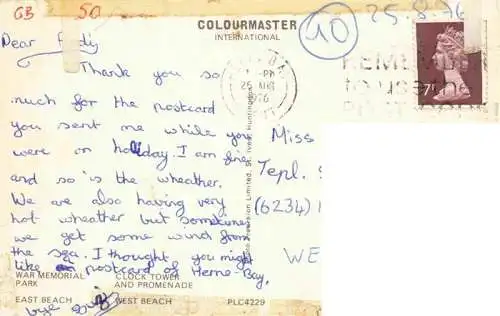 GB 50
COLOURMASTER
INTERNATIONAL
10
25.8.76
Dear
Thank you so
much for the postcard
you sent me while you
were on holiday. I am fine
and so is the wheather.
We are also having very
hot wheather but sometimes
we get some wind from
the sea. I thought you might
like a postcard of Herne-Bay.
bye
PM
25 AUG
1976
REMEMBER
to use the
POST
7
Miss
Tepl.
(6234)
WE
WAR MEMORIAL
PARK
CLOCK TOWER
AND PROMENADE
EAST BEACH
WEST BEACH
PLC4229
Precision Limited, St. Ives, Huntingdon